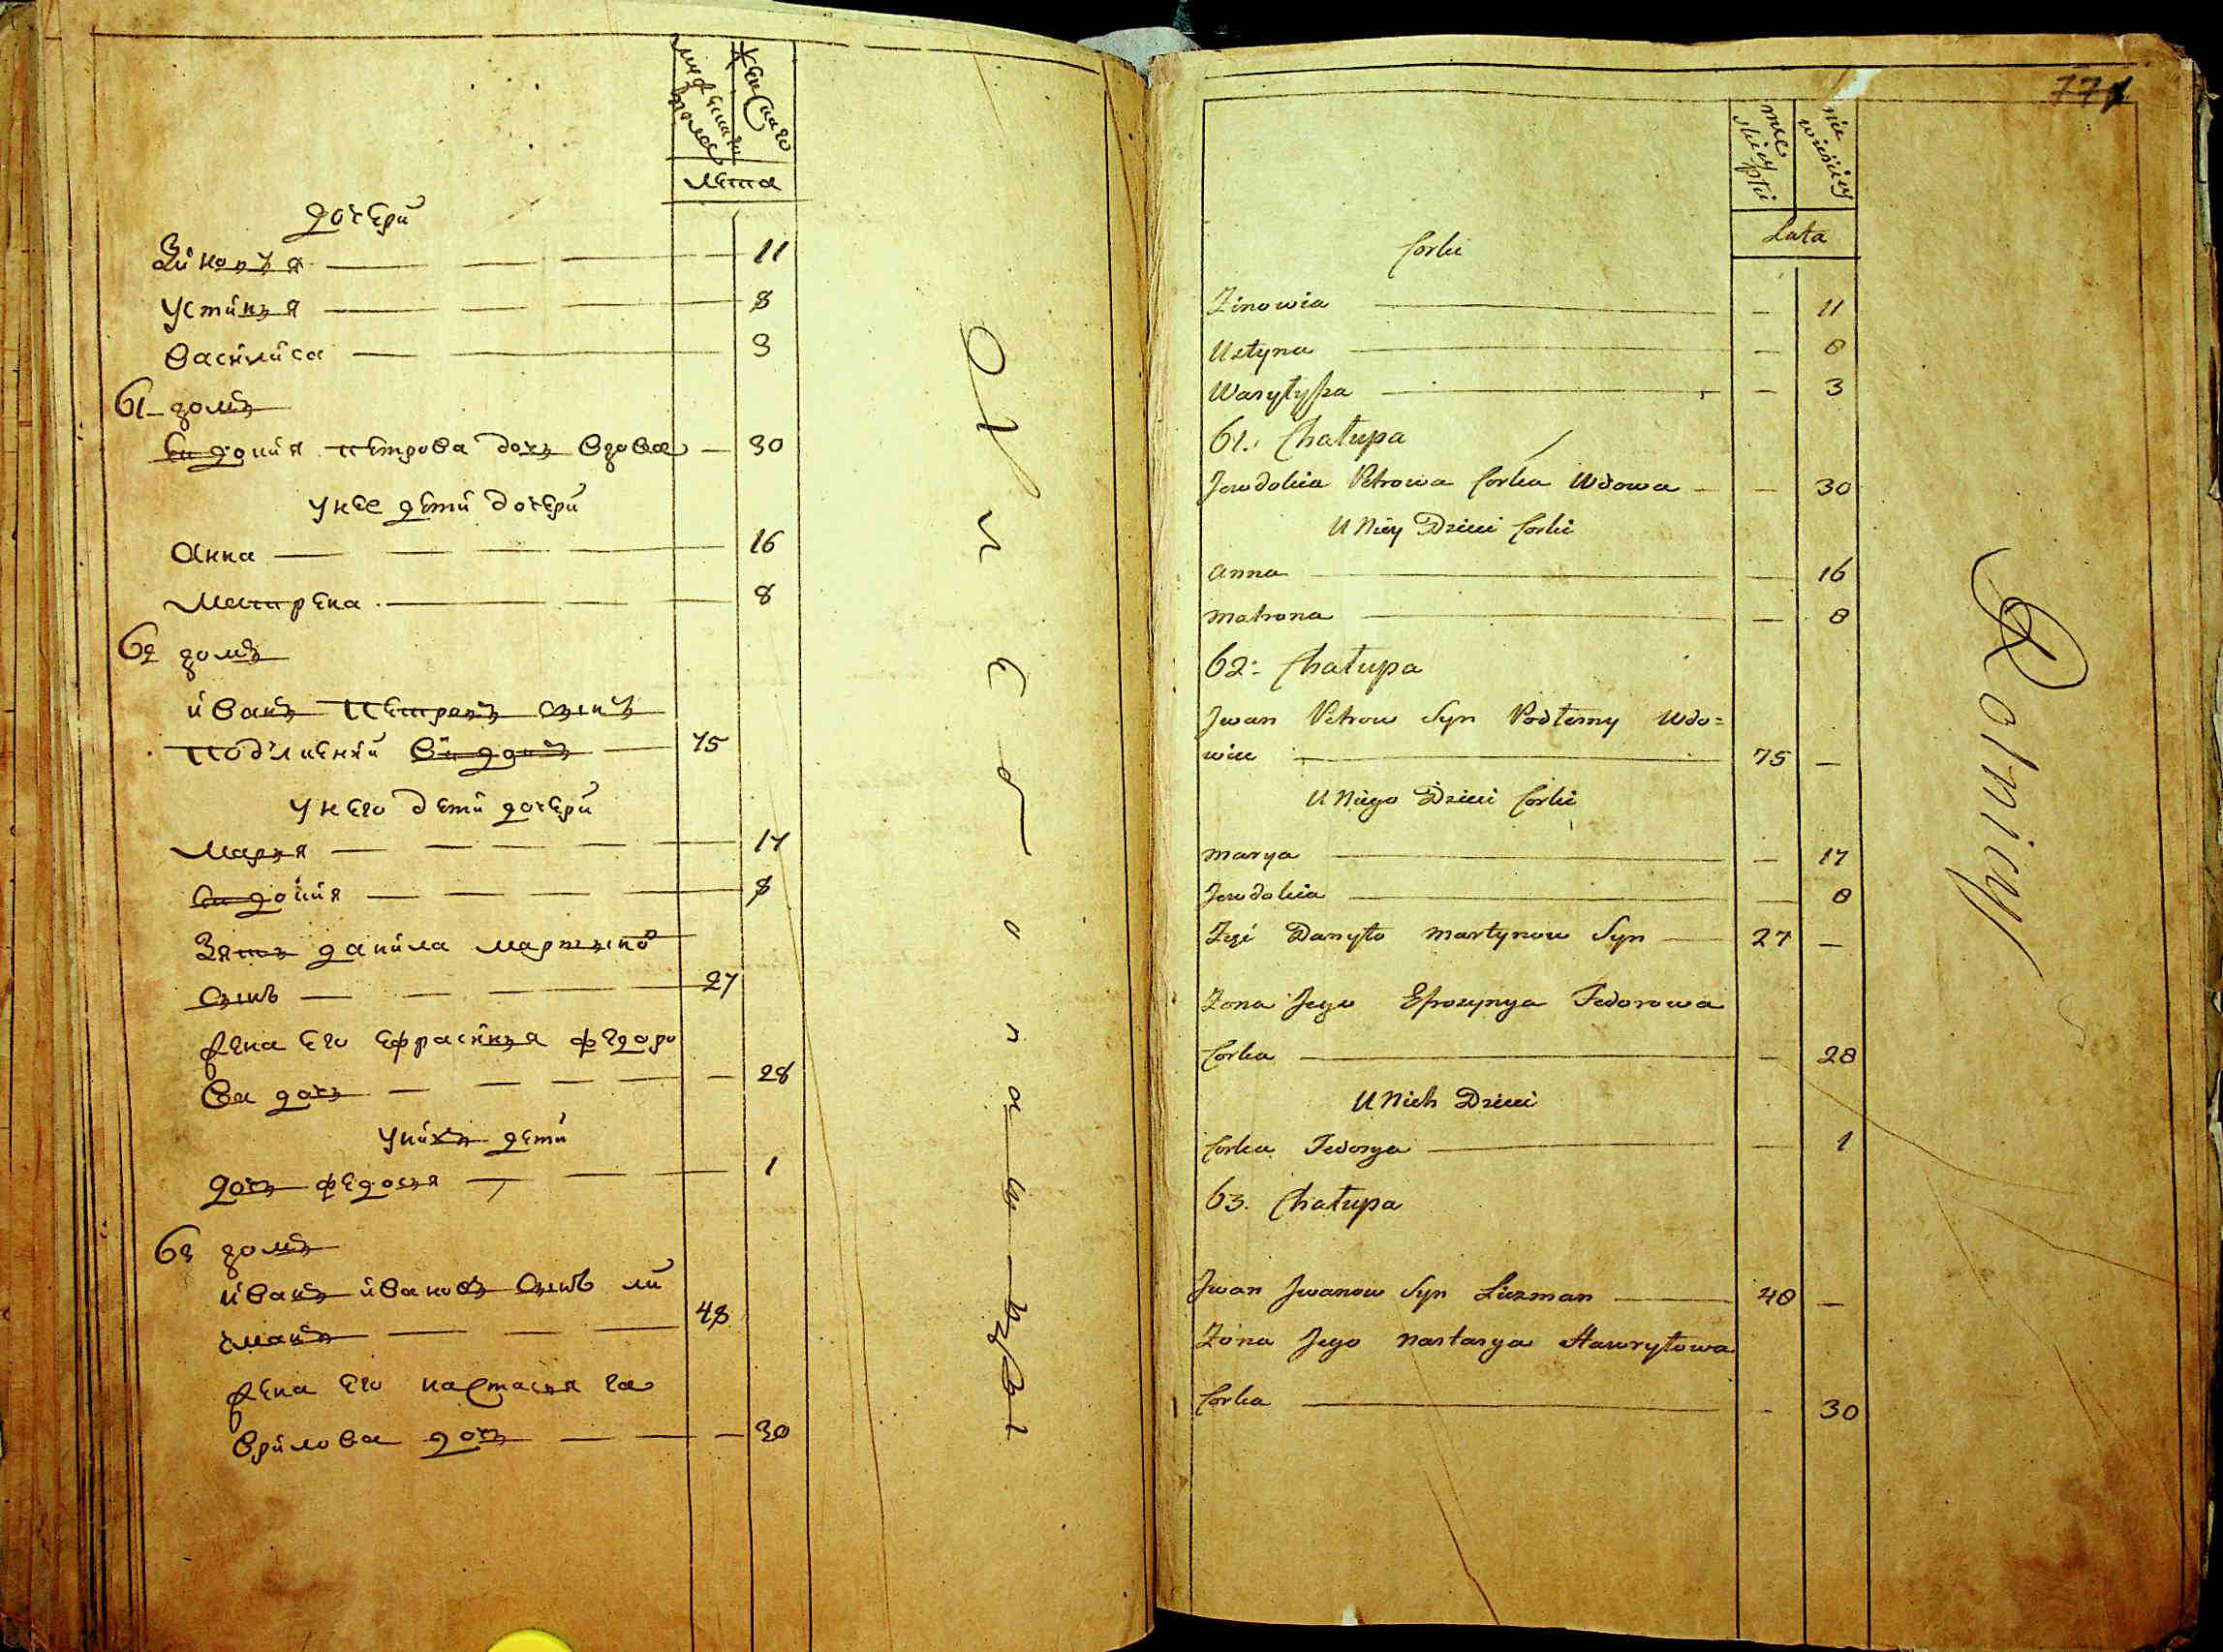 мужеска полу
женскаго
лета
дочери
Зиновъя — 11
Устинъя — 8
Василиса — 3
61 домъ
Евдокия петрова дочъ вдова — 30
у нее дети дочери
Анна — 16
Матрена — 8
62 домъ
иванъ петровъ сынъ
подлиений вдовъ — 75
у него дети дочери
Маръя — 17
Евдокия — 8
Зять данила мартыновъ
сынъ — 27
жена его ефрасинъя федоро
ва дочъ — 28
у нихъ дети
дочъ федосъя — 1
63 домъ
иванъ ивановъ сынъ ли
зманъ — 48
жена его настасъя га
врилова дочъ — 30
771
męskiey płci
niewieściey
Lata
Corki
Zinowia — 11
Ustyna — 8
Wasyłyssa — 3
61. Chałupa
Jewdokia Petrowa Corka Wdowa — 30
U Niey Dzieci Corki
Anna — 16
Matrona — 8
62. Chałupa
Jwan Petrow Syn Podlemy Wdo=
wiec — 75 —
U Niego Dzieci Corki
Marya — 17
Jewdokia — 8
Zięć Danyło Martynow Syn — 27 —
Zona Jego Efrozynya Fedorowa
Corka — 28
U Nich Dzieci
Corka Fedosya — 1
63. Chałupa
Jwan Jwanow Syn Liczman — 48 —
Zona Jego Nastasya Hawryłowa
Corka — 30
Rolnicy